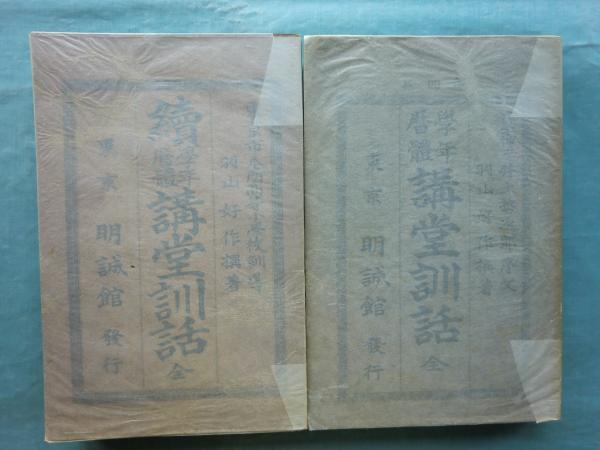 羽山好作撰著
續
學年
暦體
講堂訓話 全
東京 明誠館 發行
羽山好作撰著
學年
暦體
講堂訓話 全
東京 明誠館 發行